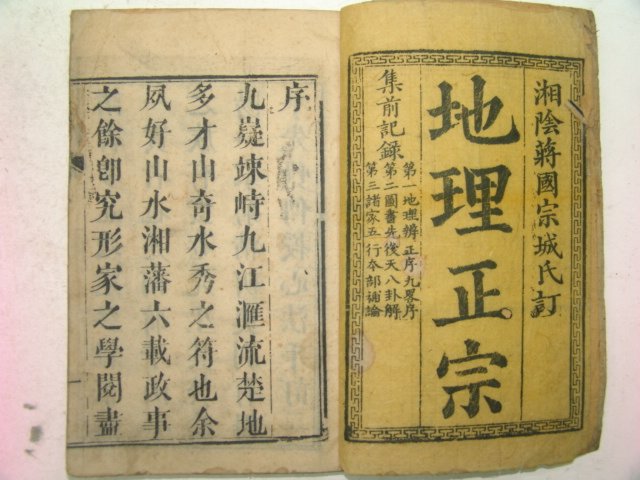 湘陰蔣國宗城氏訂
地理正宗
集前記録
第一地理辨正序九畧序
第二圖書先後天八卦解
第三諸家五行本部論
序
九嶷竦峙九江滙流楚地
多才山奇水秀之符也余
夙好山水湘藩六載政事
之餘卽究形家之學閱盡